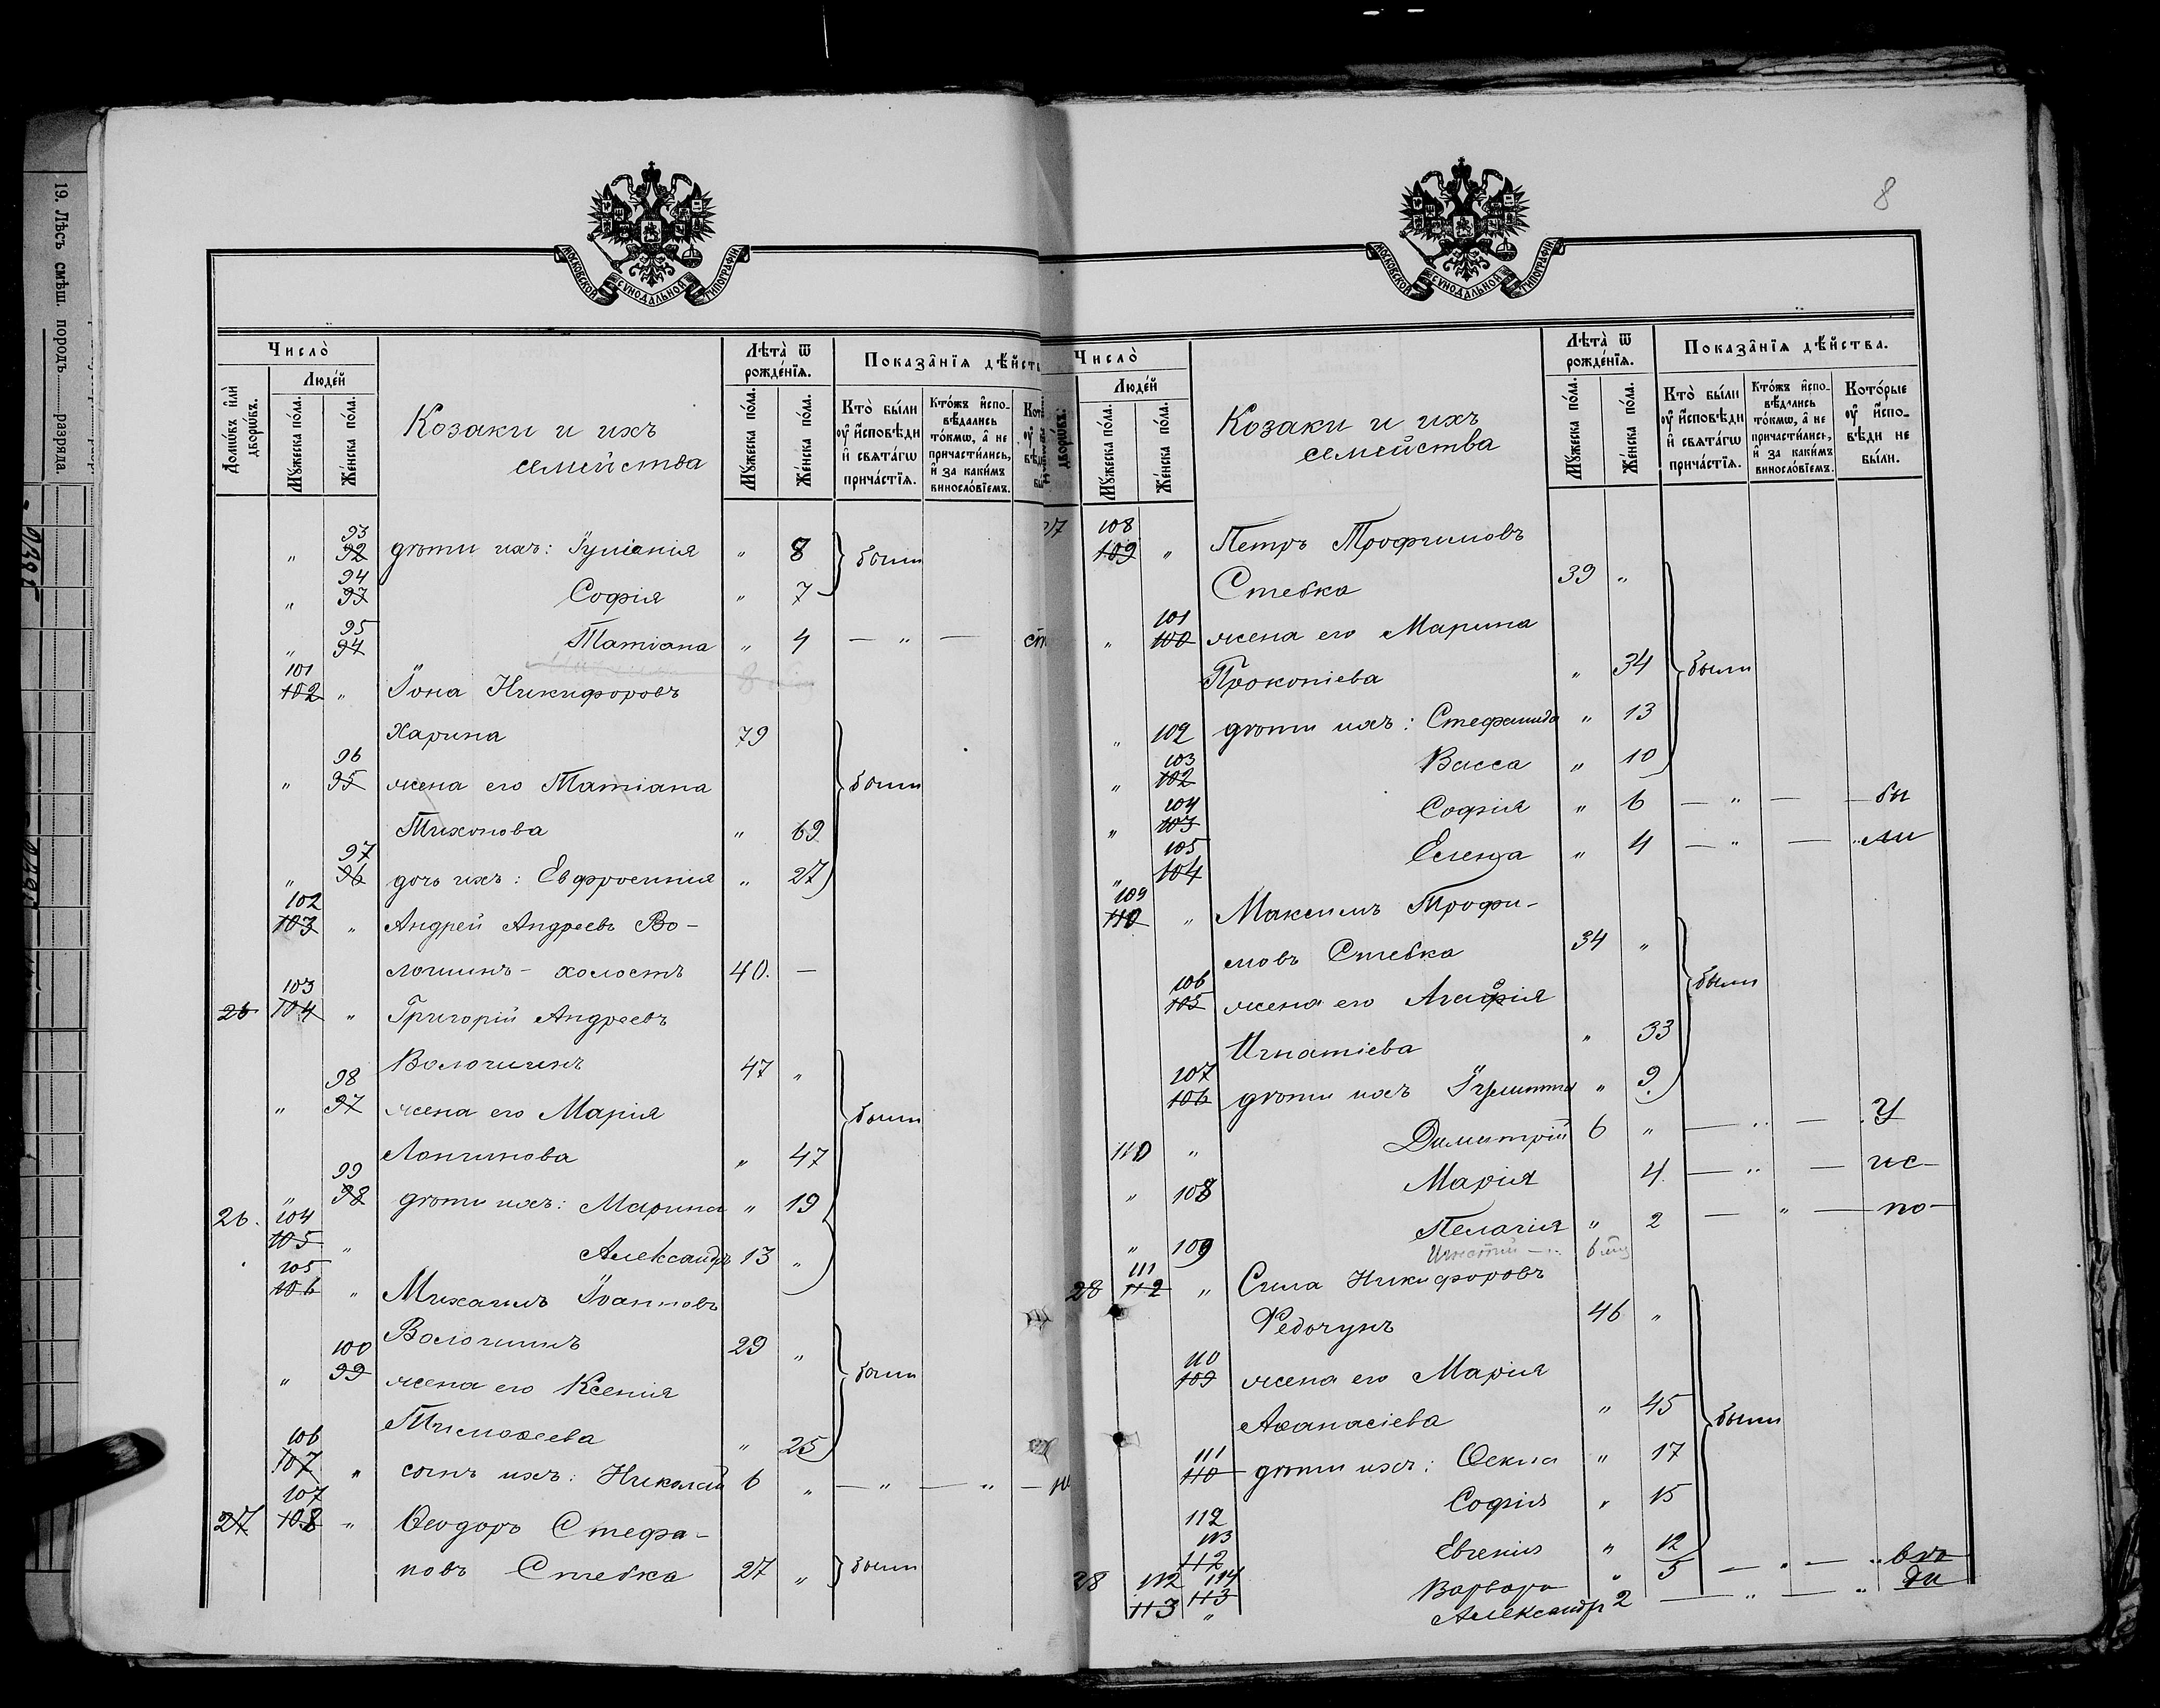 19. Лѣсъ смѣш. породъ разряда.
МОСКОВСКОЙ СѴНОДАЛЬНОЙ ТИПОГРАФІИ
Число̀
Люде́й
Домѡ́въ и҆лѝ дворѡ́въ.
Мꙋ́жеска по́ла.
Же́нска по́ла.
Козаки и ихъ
семейства
Лѣта̀ ѿ рожде́нїѧ.
Мꙋ́жеска по́ла.
Же́нска по́ла.
Показа̑нїѧ дѣ́йств
Кто̀ бы́ли оу҆ и҆сповѣди и҆ свѧта́гѡ прича́стїѧ.
Кто́жъ и҆спо- вѣдались то́кмѡ, а҆ не причасти́лись, и҆ за каки́мъ винослѡ́вїемъ.
" 93 92 дѣти ихъ: Іуліанія " 8 были
" 94 93 Софія " 7
" 95 94 Татіана " 4 — " —
101 102 " Іона Никифоровъ
Харина 79
" 96 95 жена его Татіана были
Тихонова " 69
" 97 96 дочь ихъ: Евфросинія " 27
102 103 " Андрей Андреевъ Во-
лошинъ - холостъ 40. —
26 103 104 " Григорій Андреевъ
Волошинъ 47 "
" 98 97 жена его Марія были
Лонгинова " 47
" 99 98 дѣти ихъ: Марина " 19
26. 104 105 " Александръ 13 "
105 106 " Михаилъ Іоанновъ
Волошинъ 29 "
" 100 99 жена его Ксенія были
Тимоѳеева " 25
106 107 " сынъ ихъ: Николай 6 " — " — " —
27 107 108 " Ѳеодоръ Стефа-
новъ Стебка 27 " были
8
МОСКОВСКОЙ СѴНОДАЛЬНОЙ ТИПОГРАФІИ
Число̀
дворѡ́въ.
Люде́й
Мꙋ́жеска по́ла.
Же́нска по́ла.
Козаки и ихъ
семейства
Лѣта̀ ѿ рожде́нїѧ.
Мꙋ́жеска по́ла.
Же́нска по́ла.
Показа̑нїѧ дѣ́йства.
Кто̀ бы́ли оу҆ и҆сповѣди и҆ свѧта́гѡ прича́стїѧ.
Кто́жъ и҆спо- вѣдались то́кмѡ, а҆ не причасти́лись, и҆ за каки́мъ винослѡ́вїемъ.
Кото́рые оу҆ и҆спо- вѣди не бы́ли.
27 108 109 " Петръ Трофимовъ
Стебка 39 "
" 101 100 жена его Марина
Прокопіева " 34 были
" 102 дѣти ихъ: Стефанида " 13
" 103 102 Васса " 10
" 104 103 Софія " 6 — " — — бы
" 105 104 Елена " 4 — " — " ли
109 110 " Максимъ Трофи-
мовъ Стебка 34 "
106 105 жена его Агафія были
Игнатіева " 33
107 106 дѣти ихъ Іулитта " 9.
110 " Димитрій 6 " — " — У
" 108 Марія 4 — " — ис-
" 109 Пелагія " 2 — " — по-
28 111 112 " Сила Никифоровъ
Федочунъ 46 "
110 109 жена его Марія
Аѳанасіева " 45 были
111 110 дѣти ихъ: Ѳекла " 17
112 Софія " 15
113 112 Евгенія " 12
28 114 113 Варвара " 5 — " — " вѣ
112 113 " Александръ 2 — " — " ди